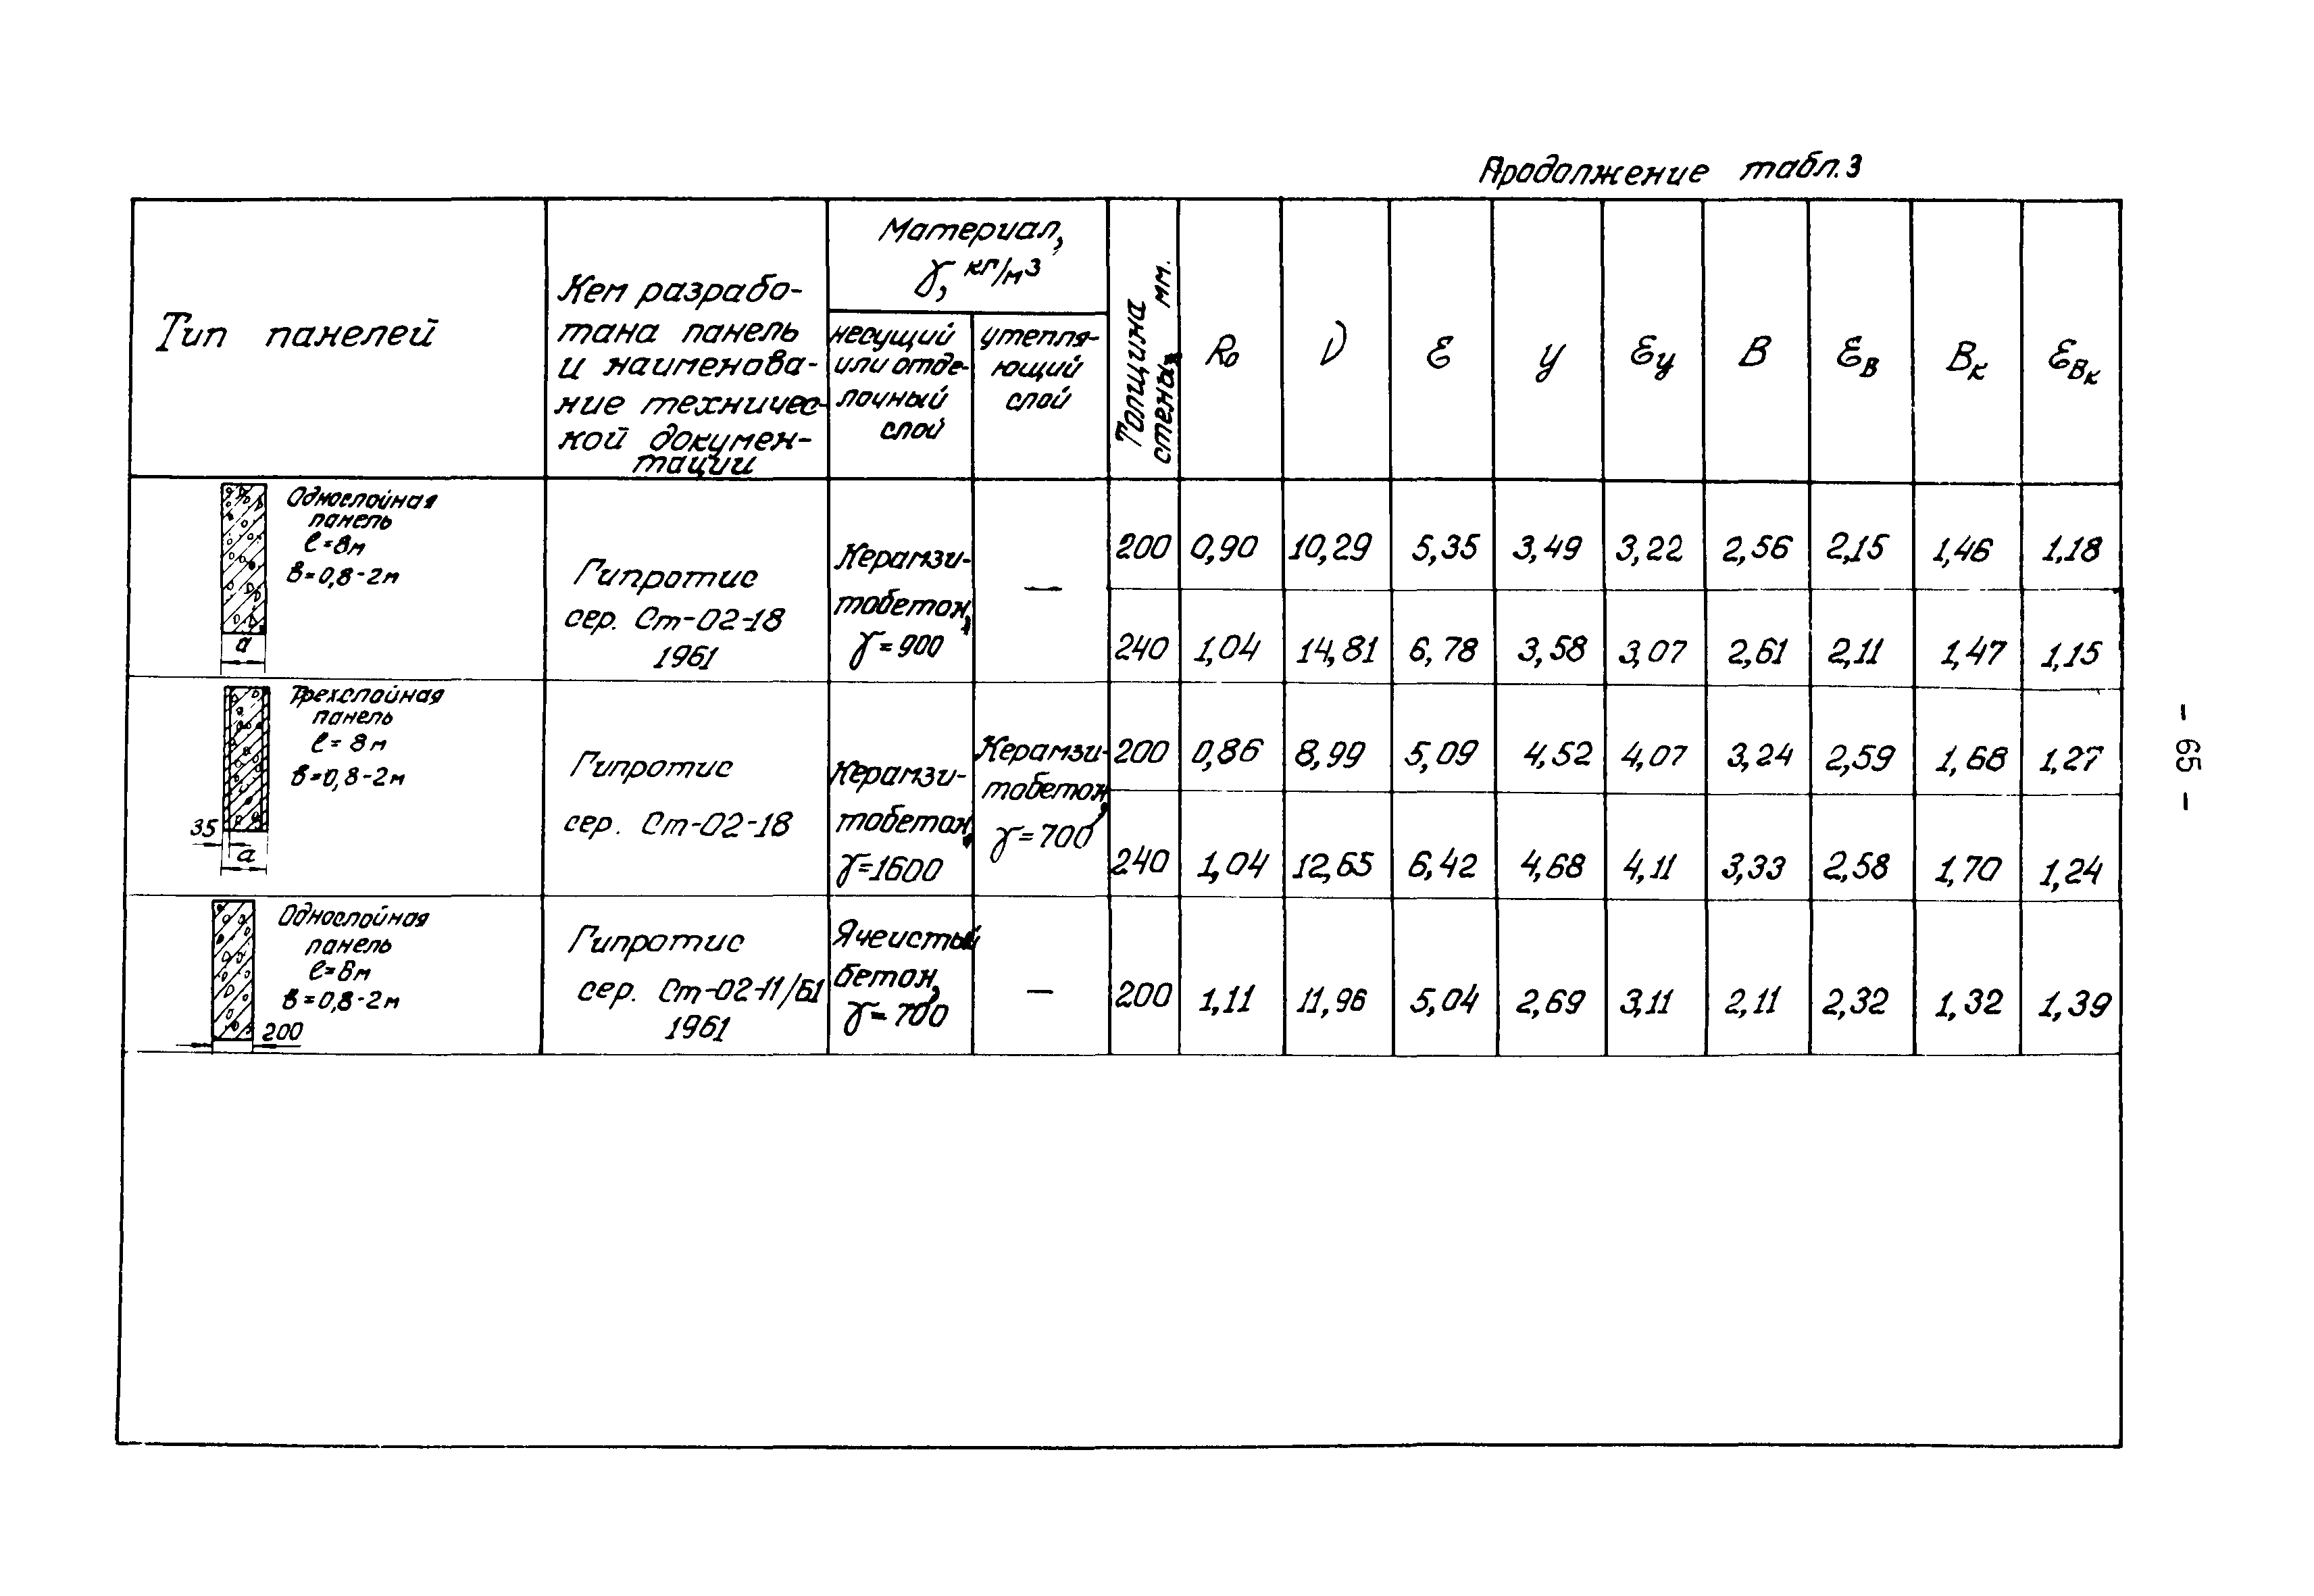 Продолжение табл. 3
Тип панелей
Кем разрабо-
тана панель
и наименова-
ние техничес-
кой докумен-
тации
Материал,
γ, кг/м³
несущий
или отде-
лочный
слой
утепля-
ющий
слой
Толщина
стены, мм.
R₀
ν
ε
y
εy
B
εB
Bк
εBк
Однослойная
панель
l=8м
в=0,8-2м
a
Гипротис
сер. Ст-02-18
1961
Керамзи-
тобетон,
γ=900
—
200 0,90 10,29 5,35 3,49 3,22 2,56 2,15 1,46 1,18
240 1,04 14,81 6,78 3,58 3,07 2,61 2,11 1,47 1,15
Трехслойная
панель
l=8м
в=0,8-2м
35
a
Гипротис
сер. Ст-02-18
Керамзи-
тобетон,
γ=1600
Керамзи-
тобетон,
γ=700
200 0,86 8,99 5,09 4,52 4,07 3,24 2,59 1,68 1,27
240 1,04 12,65 6,42 4,68 4,11 3,33 2,58 1,70 1,24
Однослойная
панель
l=6м
в=0,8-2м
200
Гипротис
сер. Ст-02-11/61
1961
Ячеистый
бетон,
γ=700
—
200 1,11 11,96 5,04 2,69 3,11 2,11 2,32 1,32 1,39
- 65 -